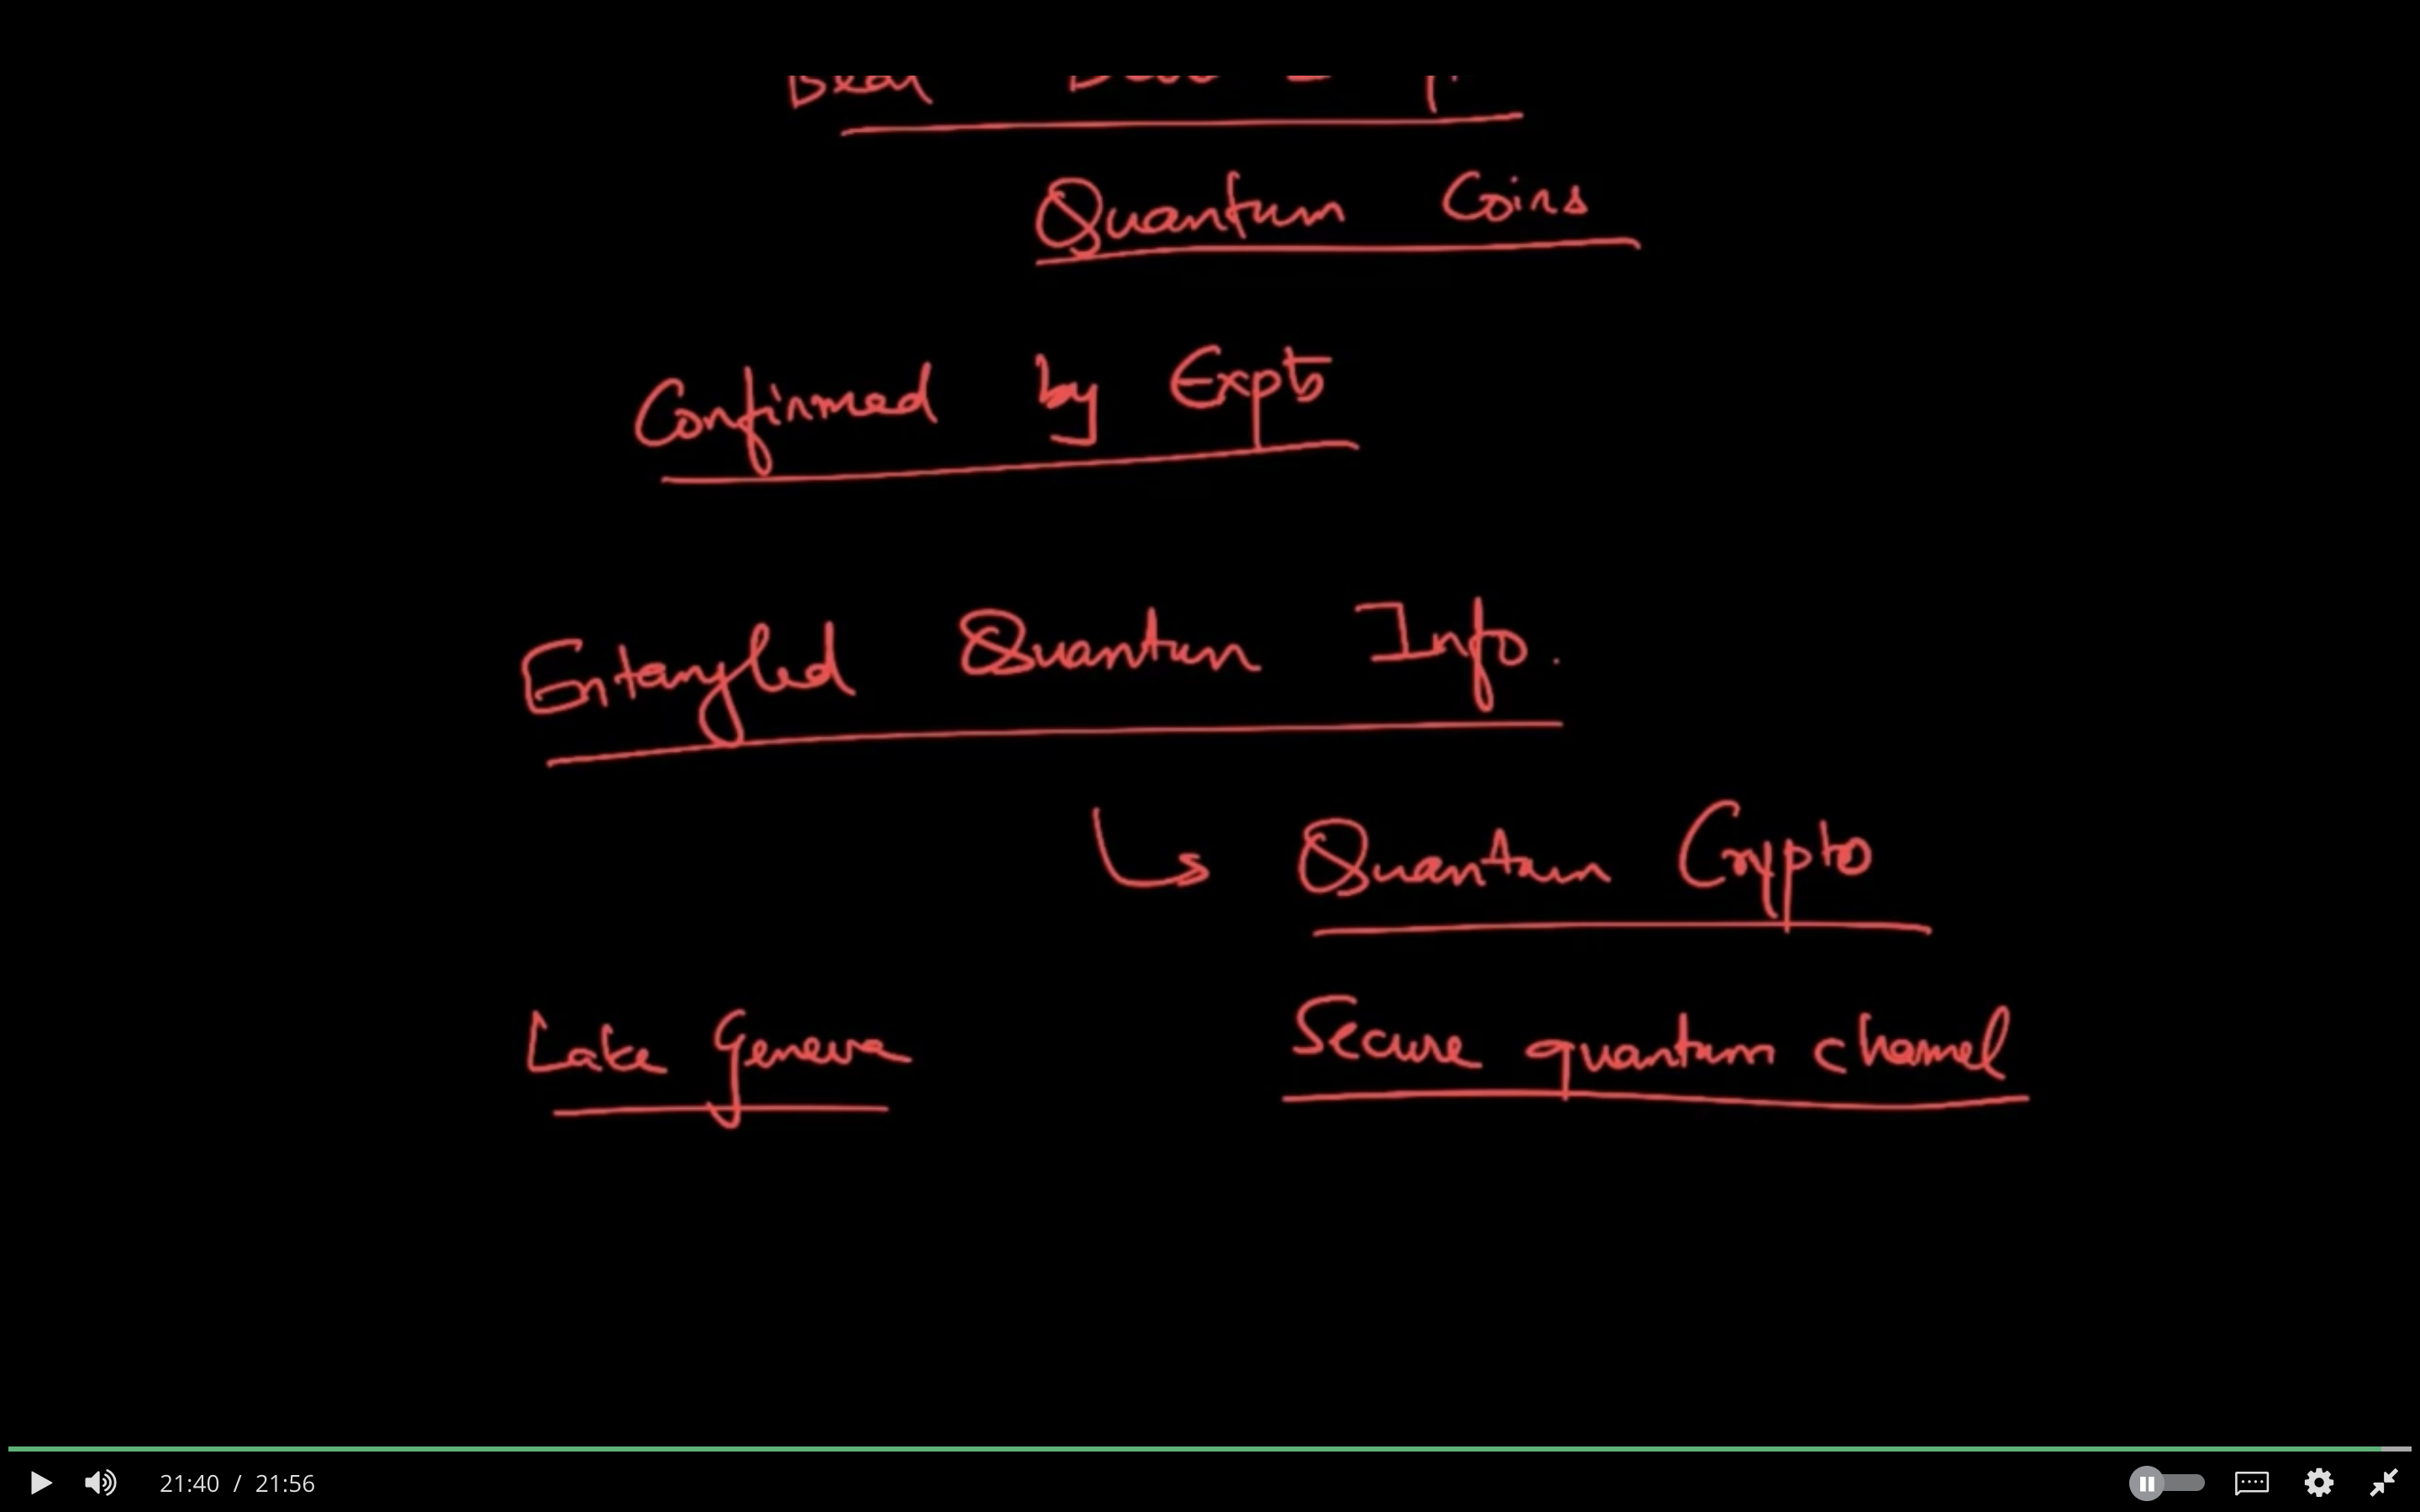 Quantum Coins
Confirmed by Expts
Entangled Quantum Info.
Quantum Crypto
Lake Geneva
Secure quantum channel
21:40 / 21:56